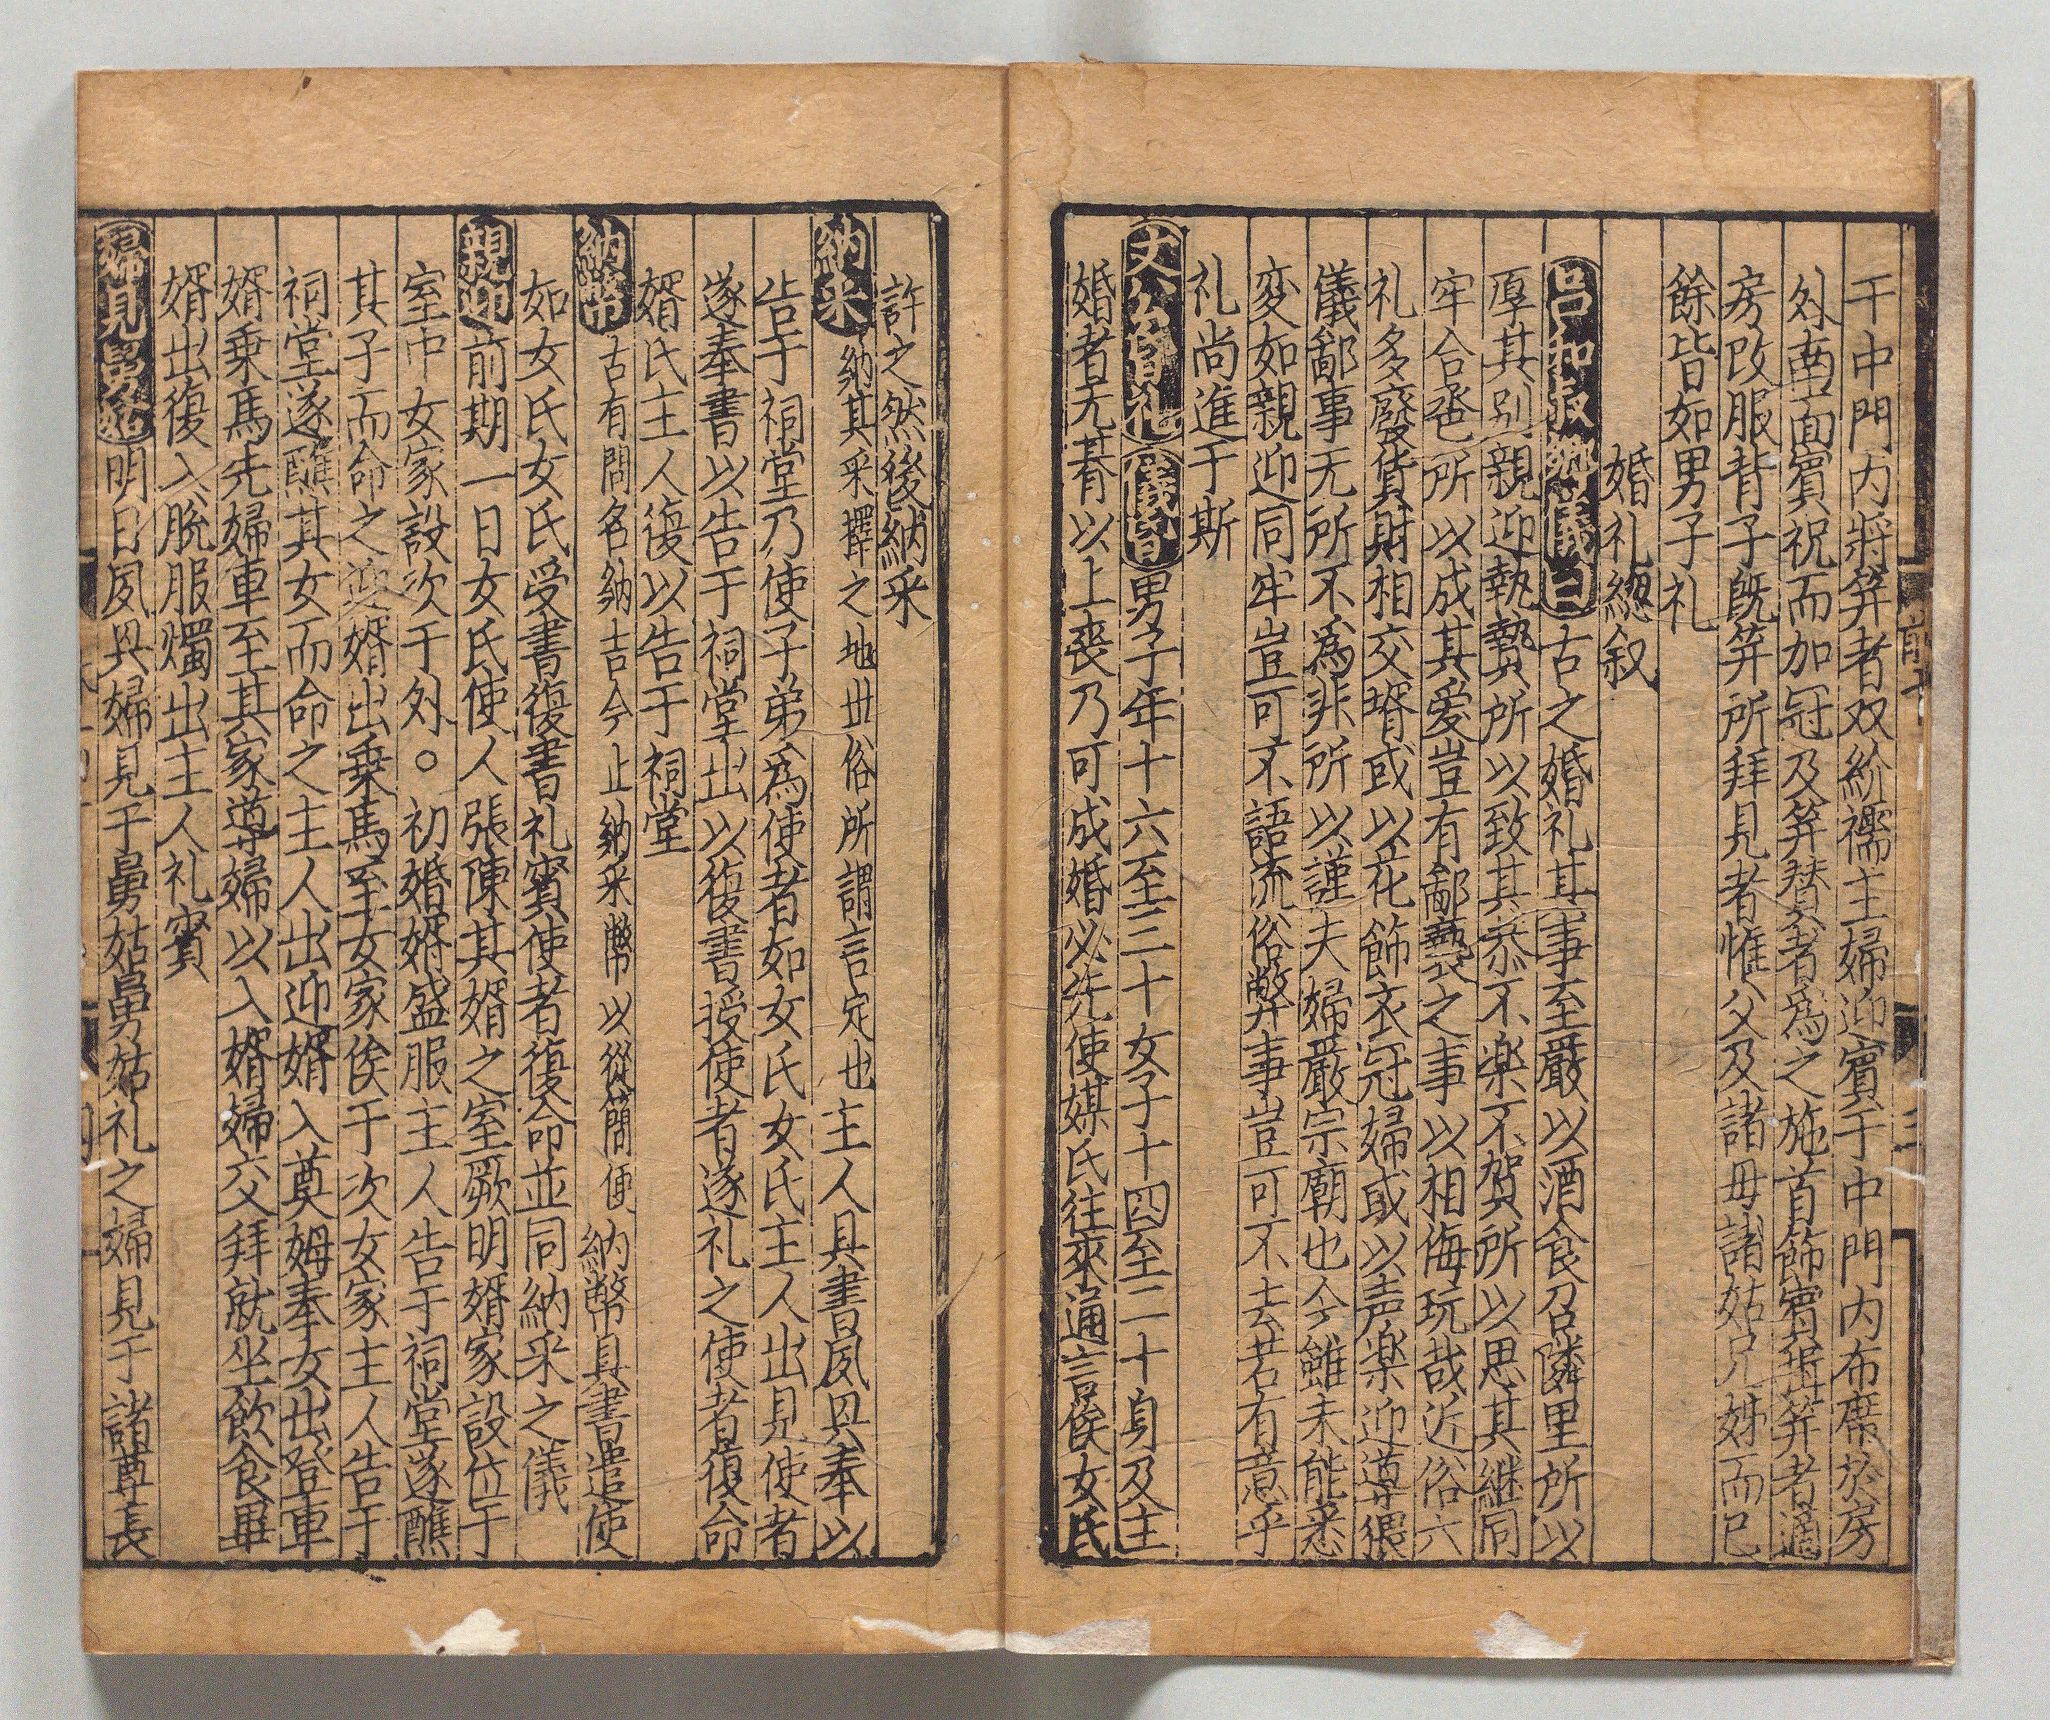 于中門内將筓者双紒襦主婦迎賔于中門内布席於房
外南面賔祝而加冠及筓賛者為之施首飾賔揖筓者適
房改服背子既筓所拜見者惟父及諸毋諸姑兄姊而已
餘皆如男子礼
婚礼緫叙
吕和叔鄉儀曰古之婚礼其事至嚴以酒食召隣里所以
厚其别親迎執贄所以致其恭不楽不賀所以思其継同
牢合卺所以成其爱豈有鄙䙝之事以相侮玩哉近俗六
礼多廢貨財相交壻或以花飾衣冠婦或以声楽迎導猥
儀鄙事无所不為非所以謹夫婦嚴宗廟也今雖未能悉
変如親迎同牢豈可不語流俗弊事豈可不去若有意乎
礼尚進于斯
文公婚礼 儀曰男子年十六至三十女子十四至二十身及主
婚者无朞以上喪乃可成婚必先使媒氏往來通言俟女氏
許之然後納采
納采 納其采擇之地丗俗所謂言定也 主人具書夙興奉以
告于祠堂乃使子弟為使者如女氏女氏主人出見使者
遂奉書以告于祠堂出以復書授使者遂礼之使者復命
婿氏主人復以告于祠堂
納幣 古有問名納吉今止納采幣以從簡便 納幣具書遣使
如女氏女氏受書復書礼賔使者復命並同納采之儀
親迎 前期一日女氏使人張陳其婿之室厥明婿家設位于
室中女家設次于外○初婚婿盛服主人告于祠堂遂醮
其子而命之迎婿出乗馬至女家俟于次女家主人告于
祠堂遂醮其女而命之主人出迎婿入奠姆奉女出登車
婿乗馬先婦車至其家導婦以入婿婦交拜就坐飲食畢
婿出復入脫服燭出主人礼賔
婦見舅姑 明日夙興婦見于舅姑舅姑礼之婦見于諸尊長